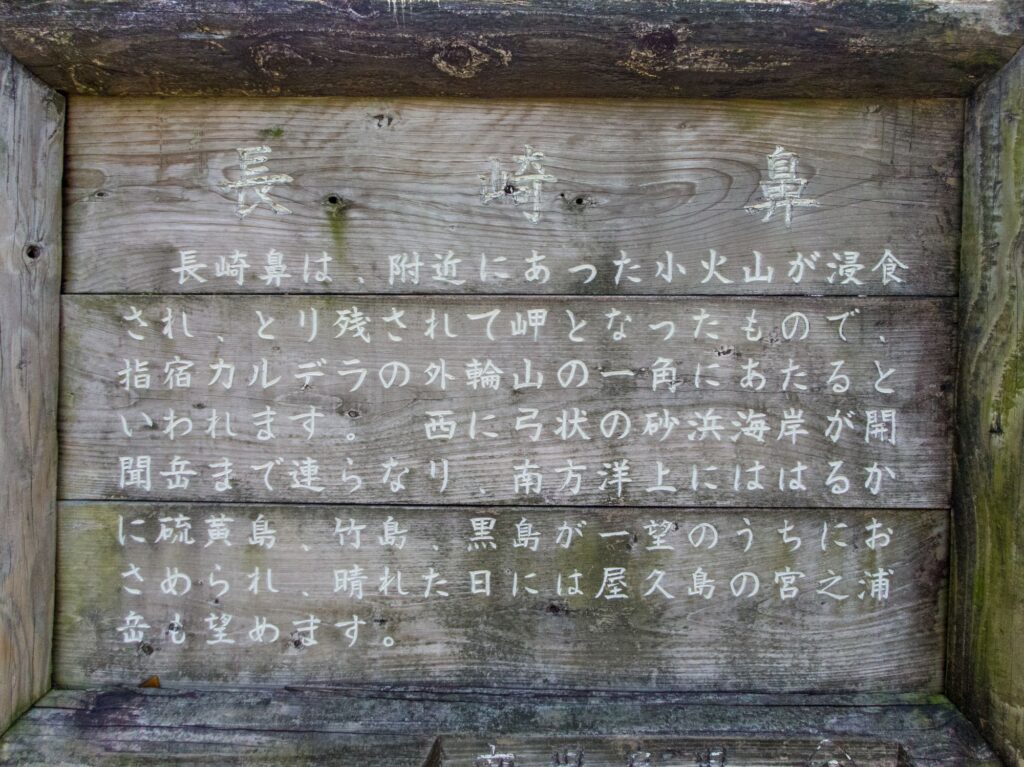 長崎鼻
長崎鼻は、附近にあった小火山が浸食
され、とり残されて岬となったもので、
指宿カルデラの外輪山の一角にあたると
いわれます。 西に弓状の砂浜海岸が開
聞岳まで連らなり、南方洋上にははるか
に硫黄島、竹島、黒島が一望のうちにお
さめられ、晴れた日には屋久島の宮之浦
岳も望めます。